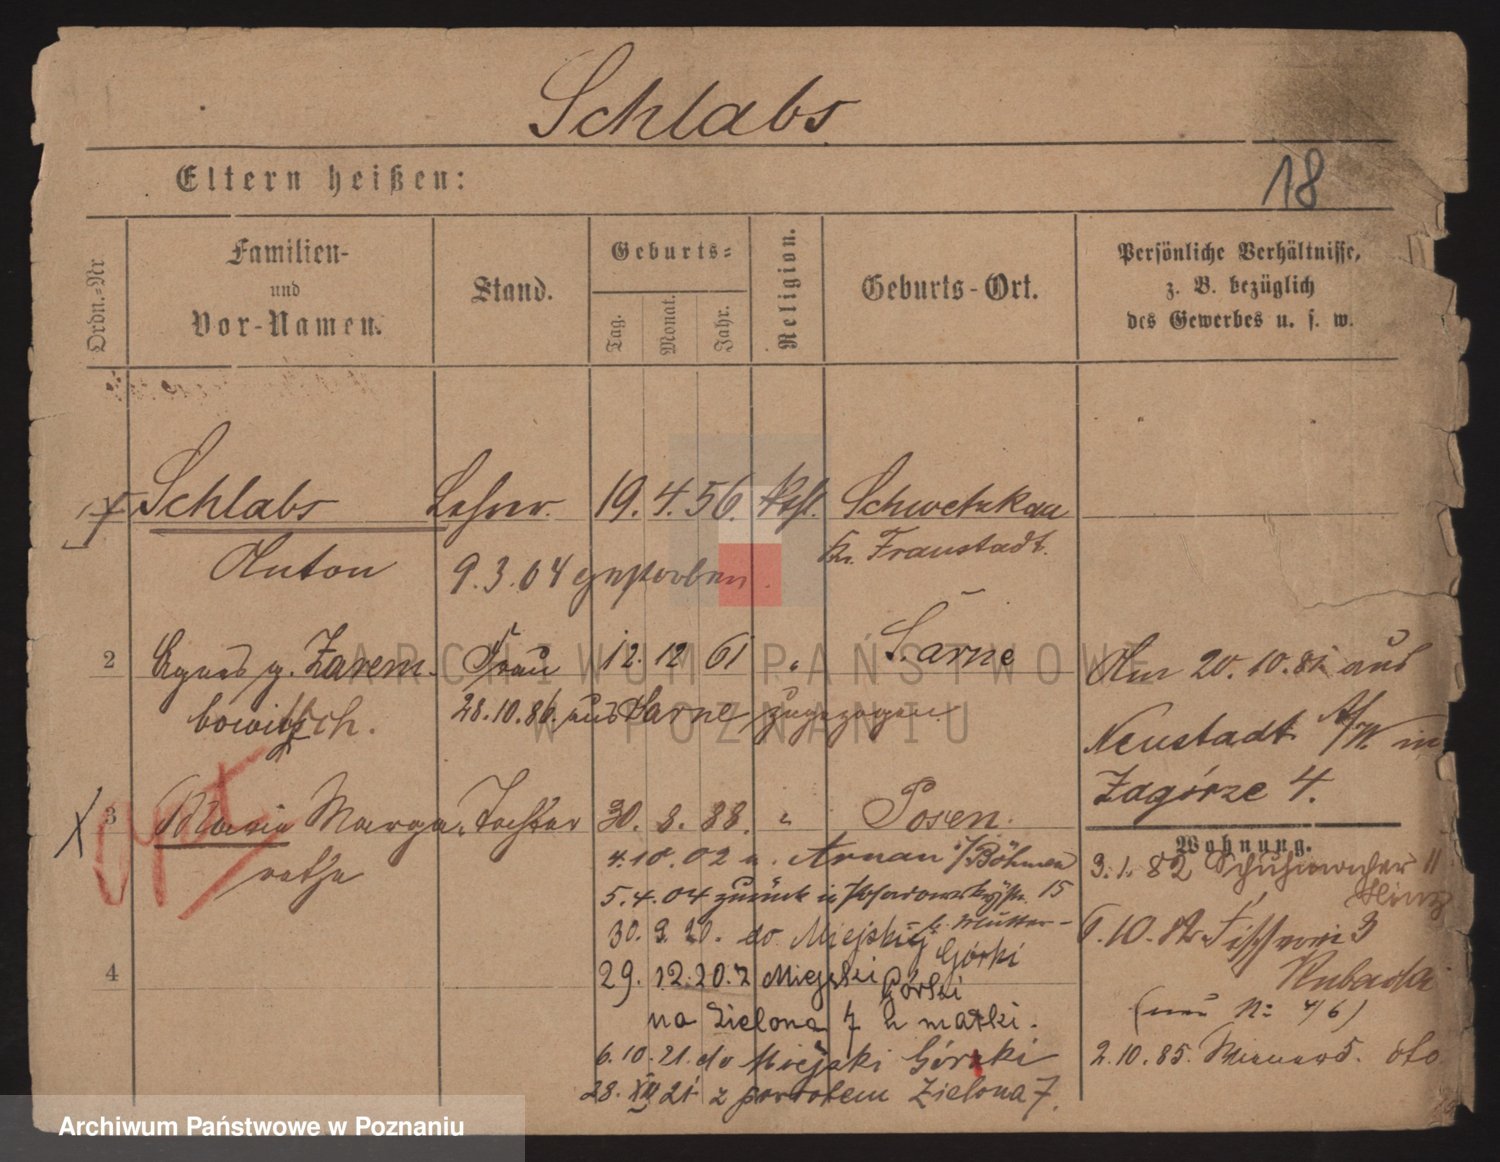 Schlabs
Eltern heißen:
18
Ordn.-Nr
Familien-
und
Vor-Namen.
Stand.
Geburts-
Tag.
Monat.
Jahr.
Religion.
Geburts-Ort.
Persönliche Verhältnisse,
z. B. bezüglich
des Gewerbes u. s. w.
1 Schlabs Lehrer 19. 4. 56. kth. Schwetzkau
Anton 9.3.04 gestorben. Kr. Fraustadt.
2 Agnes g. Zarem- Frau 12. 12 61 " Sarne
bowitsch. 28.10.86. aus Sarne zugezogen
Am 20.10.81 aus
Neustadt in
Zagórze 4.
3 Maria Marga- Tochter 30. 8. 88. " Posen.
retha
4.10.02 n. Arnau i/Böhmen
5.4.04 zurück 15
b. Mutter-
30. 9. 20. do Miejskiej Górki
29. 12. 20. z Miejski Górki
na Zielona 7 u matki.
6.10.21. do Miejski Górki
28. XII 21 z powrotem Zielona 7.
Wohnung.
3.1.82 Schuhmacher 11
6.10.82 Fischerei 3
(neu N: 4/6)
2.10.85.
4
ARCHIWUM PAŃSTWOWE
W POZNANIU
Archiwum Państwowe w Poznaniu